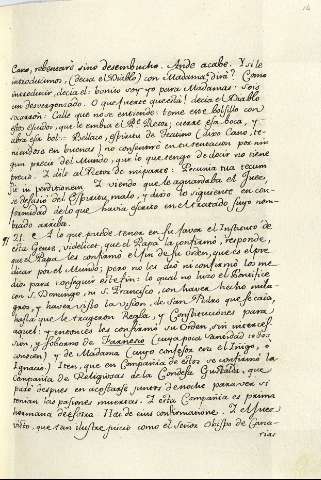 Cano, rebentarè sino desembucho. Ande acabe. Y si le
introducimos, (decia el Diablo) con Madama, dirà? Como
introducir, decia el: bonito soy yo para Madamas: sois
un desvergonzado. O que fuerte questa! decia el Diablo
Calle que no se entiende: tome este bolsillo con
estos escudos, que le embia el Pe. Retor, cierre essa boca, y
abra essa bol - Bellaco, espiritu de (dixo Cano, te-
niendose en buenas) no consentirè en essa tentacion por nin-
gun precio del Mundo, que lo que tengo de decir no tiene
precio. I dile al Retor de mi parte: Pecunia tua tecum
sit in perditionem. I viendo que le aguardaba el Juez,
se defasiò del Espiritu malo, y dixo lo siguiente en con-
formidad de lo que havia escrito en el tratado suyo nom-
brado arriba.
21. A lo que puede tener en su favor el Instituto de
esta Gente, videlicet, que el Papa la confirmò, respondo,
que el Papa les confirmò el fin de su orden, que es el pre-
dicar por el Mundo; pero no les diò ni confirmò los me-
dios para conseguir este fin: lo qual no hizo el Pontifice
con S. Domingo, ni S. Francisco, con haver hecho mila-
gros, y haver visto la vision de San Pedro que se caia,
hasta que le truxeron Regla, y Constituciones para
aquel: y entonces les confirmò su Orden, sin interces-
sion, y soborno de Farnese (cuya poca Santidad todos
conocen) y de Madama (cuyo confessor era el Inigo, o
Ignacio) Iten, que en Compañia de estos se confirmò la
Compañia de Religiosas de la Condesa Gustalda, que
parò despues en acostarse juntos de noche para ver si
tenian las passiones muertas. I esta Compañia es prima
hermana de essotra. Fiad de sus confirmaciones. I
visto, que tan ilustre juicio como el señor Obispo de Cana-
rias